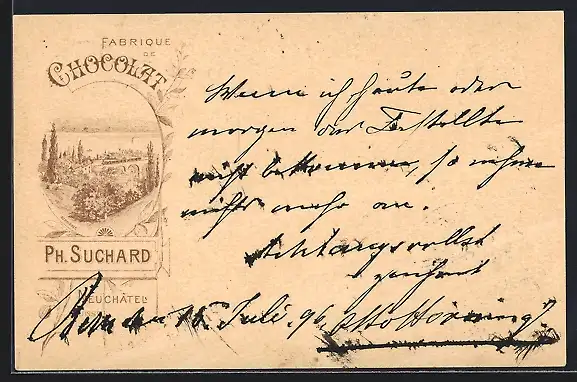 FABRIQUE
DE
CHOCOLAT
PH. SUCHARD
NEUCHÂTEL
Wenn ich heute oder
morgen das Bestellte
nicht bekomme, so nehme
nichts mehr an.
Achtungsvollst
den 15. Juli. 96. Otto Hornung